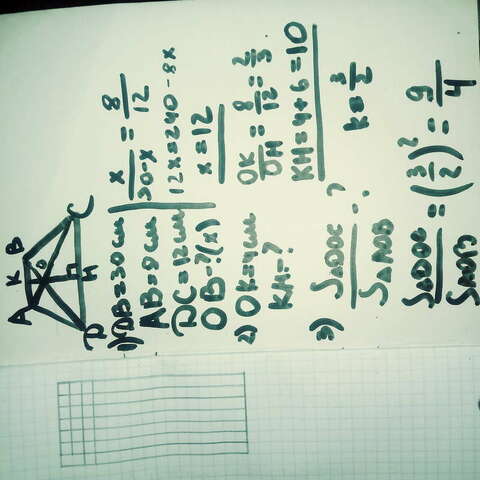 A K B
O
D H C
1) DB=30 см
AB=8 см
DC=12 см
OB-?(x)
x/30-x = 8/12
12x=240-8x
x=12
2) OK=4 см
KH-?
OK/OH = 8/12 = 2/3
KH=4+6=10
3) S△DOC/S△AOB = ?
k=3/2
S△DOC/SAOB = (3/2)² = 9/4